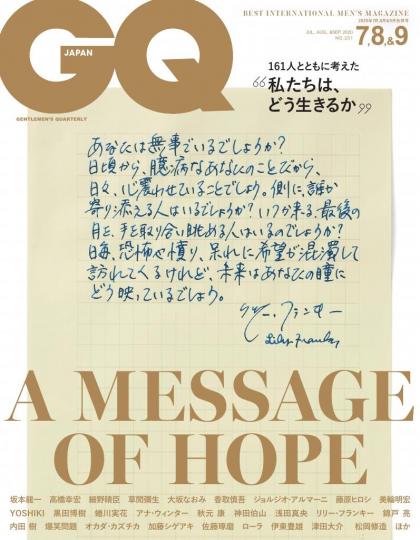 BEST INTERNATIONAL MEN'S MAGAZINE
GQ
JAPAN
GENTLEMEN'S QUARTERLY
JUL, AUG, &SEP. 2020
7,8,&9
161人とともに考えた
“私たちは、
どう生きるか”
あなたは無事でいるでしょうか?
日頃から、臆病なあなたのことだから、
日々、心震わせていることでしょう。側に、誰か
寄り添える人はいるでしょうか?いつか来る、最後の
月を、手を取り合い眺める人はいるのでしょうか?
毎晩、恐怖や憤り、呆れに希望が混濁して
訪れてくるけれど、未来はあなたの瞳に
どう映っているでしょう。
リリー・フランキー
Lily Franky
A MESSAGE
OF HOPE
坂本龍一 高橋幸宏 細野晴臣 草間彌生 大坂なおみ 香取慎吾 ジョルジオ・アルマーニ 藤原ヒロシ 美輪明宏
YOSHIKI 黒田博樹 蜷川実花 アナ・ウィンター 秋元 康 神田伯山 浅田真央 リリー・フランキー 錦戸 亮
内田 樹 爆笑問題 オカダ・カズチカ 加藤シゲアキ 佐藤琢磨 ローラ 伊東豊雄 津田大介 松岡修造 ほか